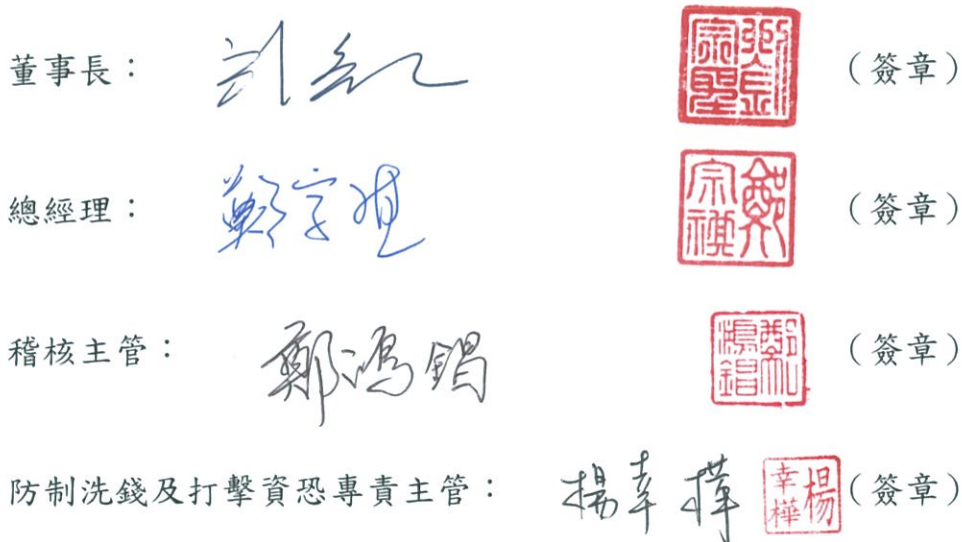 董事長： 劉宗聖 （簽章）
總經理： 鄭宗禥 （簽章）
稽核主管： 鄭鴻錩 （簽章）
防制洗錢及打擊資恐專責主管： 楊幸樺 楊幸樺 （簽章）